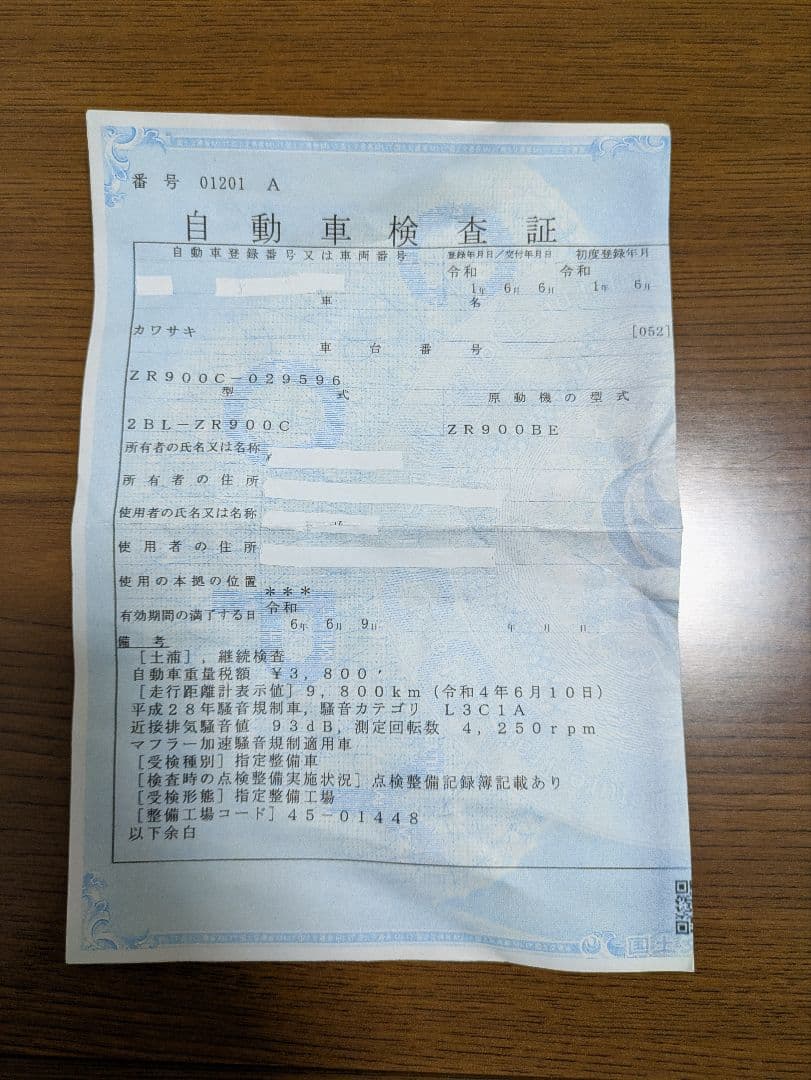 番号 01201 A
自動車検査証
自動車登録番号又は車両番号 登録年月日／交付年月日 初度登録年月
令和 令和
1年 6月 6日 1年 6月
車 名
カワサキ [052]
車台番号
ZR900C-029596
型式 原動機の型式
2BL-ZR900C ZR900BE
所有者の氏名又は名称
所有者の住所
使用者の氏名又は名称
使用者の住所
使用の本拠の位置 ***
有効期間の満了する日 令和
6年 6月 9日 年 月 日
備考
［土浦］，継続検査
自動車重量税額 ￥3，800’
［走行距離計表示値］9，800km（令和4年6月10日）
平成28年騒音規制車，騒音カテゴリ L3C1A
近接排気騒音値 93dB，測定回転数 4，250rpm
マフラー加速騒音規制適用車
［受検種別］指定整備車
［検査時の点検整備実施状況］点検整備記録簿記載あり
［受検形態］指定整備工場
［整備工場コード］45-01448
以下余白
国土